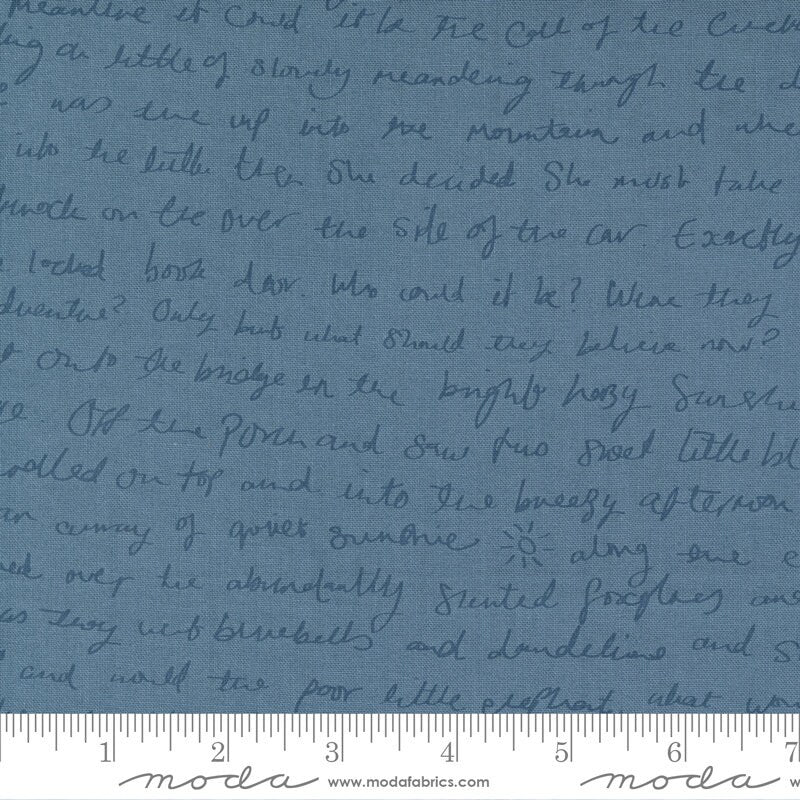 meantime it could it be the call of the
on little of slowly meandering through the
was the up into the mountain and
into the little then she decided She must take
knock on the over the side of the car. Exactly
locked book door. Who could it be? Were they
Only but what should they believe now?
onto the bridge in the bright hazy
Off the porch and saw two sweet little bl
on top and into the breezy afternoon
away of quiet sunshine along
over the abundantly scented foxgloves
they bluebells and dandelions and
and would the poor little elephant. what
1 2 3 4 5 6 7
moda www.modafabrics.com moda w